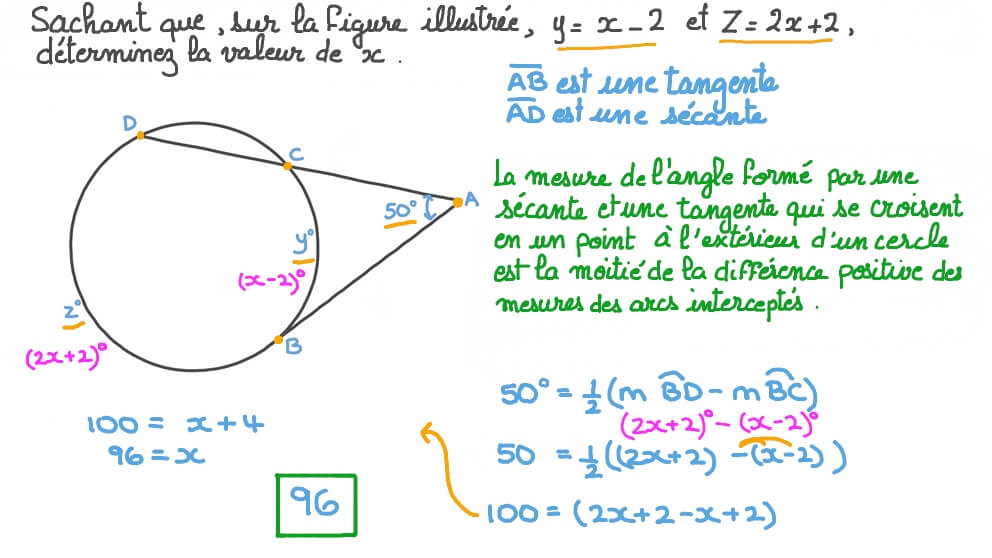 Sachant que, sur la figure illustrée, y = x - 2 et Z = 2x + 2,
déterminez la valeur de x.
AB est une tangente
AD est une sécante
D
C
A
50°
y°
(x-2)°
z°
(2x+2)°
B
La mesure de l'angle formé par une
sécante et une tangente qui se croisent
en un point à l'extérieur d'un cercle
est la moitié de la différence positive des
mesures des arcs interceptés.
50° = 1/2 (m BD - m BC)
(2x+2)° - (x-2)°
50 = 1/2 ((2x+2) - (x-2))
100 = (2x+2-x+2)
100 = x+4
96 = x
96